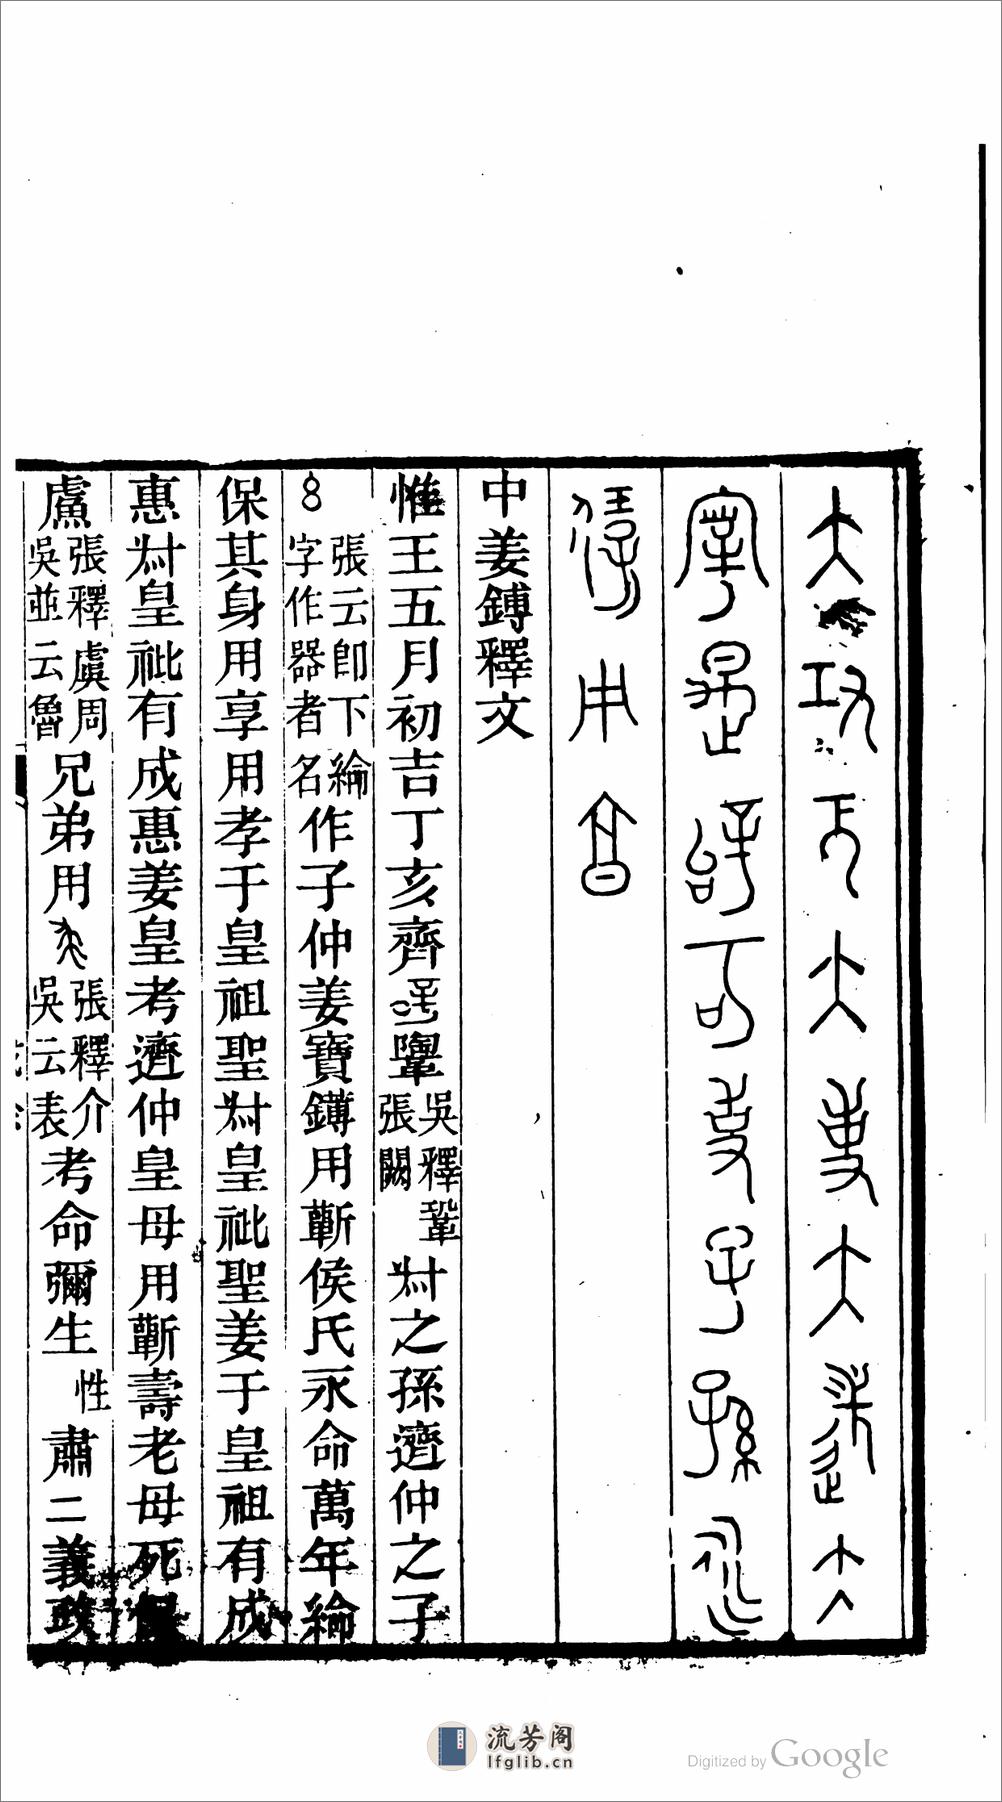 大攻厄大事大徒大
宰是辝可事子孫永
保用享
中姜鎛釋文
惟王五月初吉丁亥齊鞏吳釋鞏張闕尗之孫濟仲之子
張云卽下綸字作器者名作子仲姜寶鎛用蘄侯氏永命萬年綸
保其身用享用孝于皇祖聖尗皇祉聖姜于皇祖有成
惠尗皇祉有成惠姜皇考濟仲皇母用蘄壽老母死
鱻張釋虞周吳並云魯兄弟用張釋介吳云表考命彌生性肅二義政
流芳阁
lfglib.cn
Digitized by Google